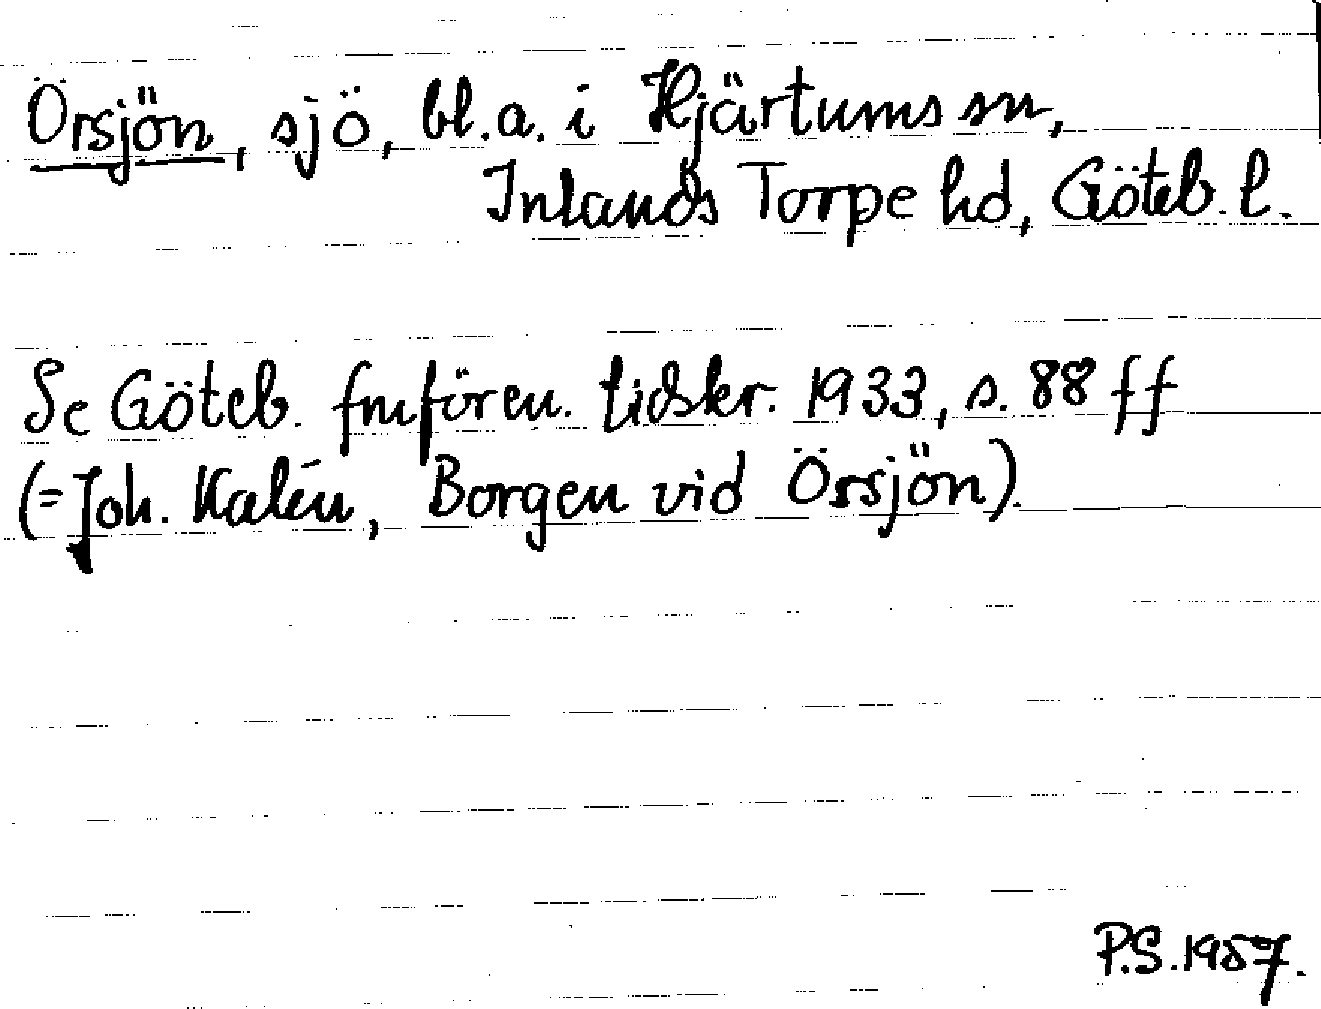 Örsjön, sjö, bl.a. i Hjärtums sn,
Inlands Torpe hd, Göteb. l.
Se Göteb. fmfören. tidskr. 1933, s. 88 ff
(= Joh. Kalén, Borgen vid Örsjön).
P.S. 1957.